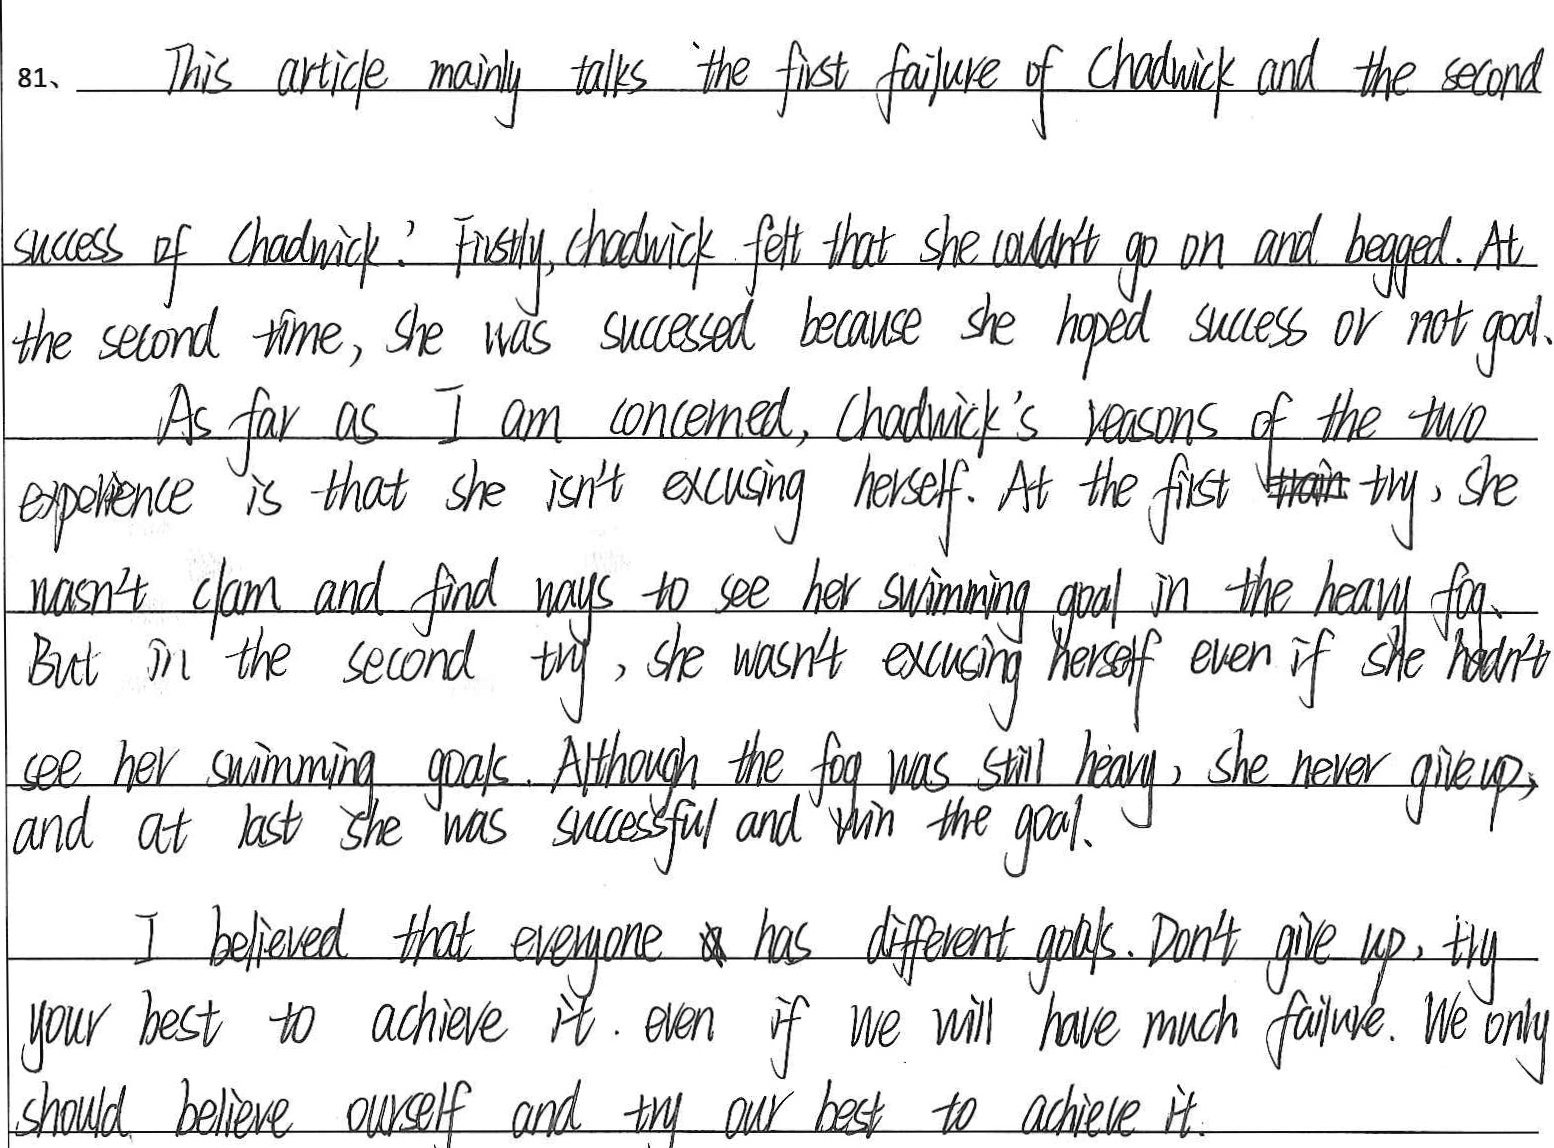 81、 This article mainly talks the first failure of Chadwick and the second
success of Chadwick. Firstly, Chadwick felt that she couldn't go on and begged. At
the second time, she was successed because she hoped success or not goal.
As far as I am concerned, Chadwick's reasons of the two
experience is that she isn't excusing herself. At the first try, she
wasn't clam and find ways to see her swimming goal in the heavy fog.
But in the second try, she wasn't excusing herself even if she hadn't
see her swimming goals. Although the fog was still heavy, she never give up,
and at last she was successful and win the goal.
I believed that everyone has different goals. Don't give up, try
your best to achieve it. even if we will have much failure. We only
should believe ourself and try our best to achieve it.